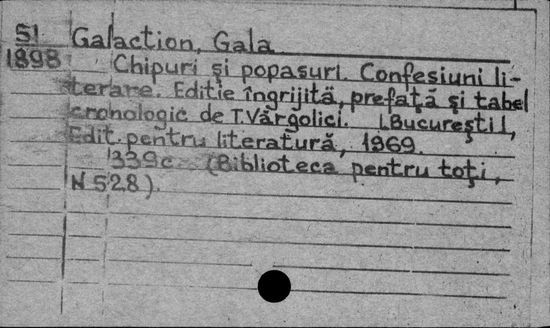 SI Galaction, Gala
1898 Chipuri și popasuri. Confesiuni li-
terare. Ediție îngrijită, prefață și tabel
cronologic de T. Vârgolici. [București],
Edit. pentru literatură, 1969.
339c (Biblioteca pentru toți,
N 528).